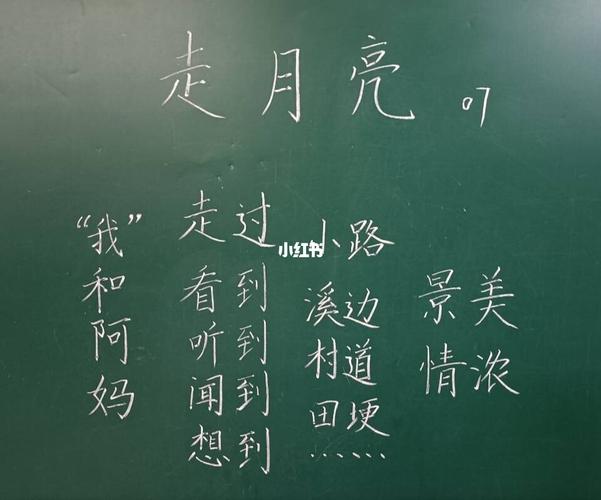 走月亮
“我”和阿妈
走过
看到
听到
闻到
想到
小路
溪边
村道
田埂
……
景美
情浓
小红书